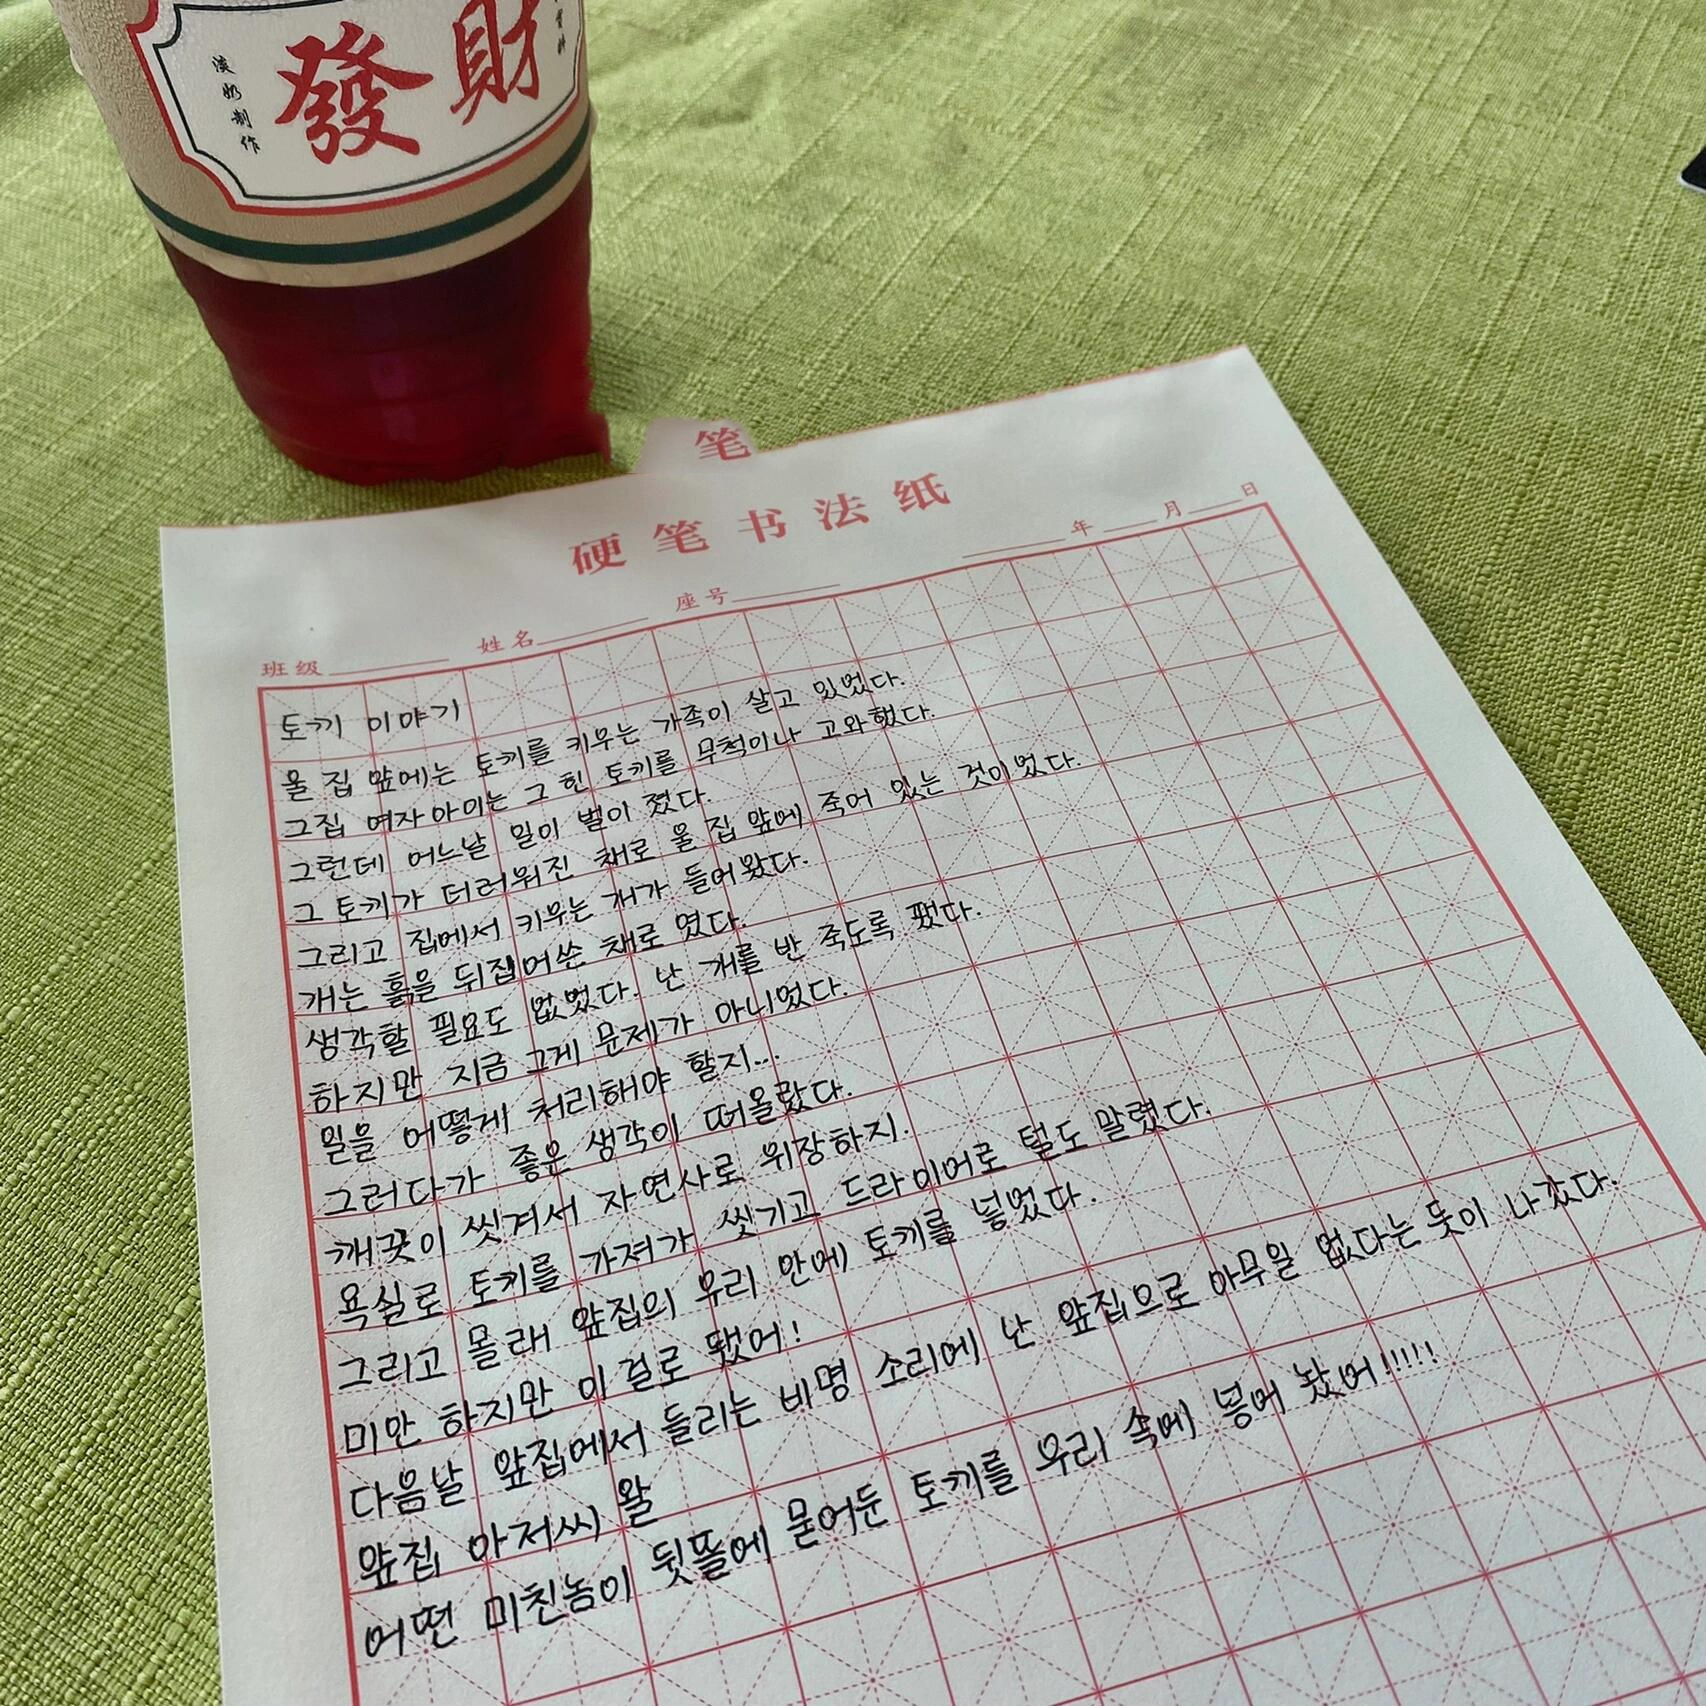 發財
淡奶制作
笔
硬笔书法纸
年 月 日
班级 姓名 座号
토끼 이야기
울 집 앞에는 토끼를 키우는 가족이 살고 있었다.
그집 여자아이는 그 흰 토끼를 무척이나 고와했다.
그런데 어느날 일이 벌이 졌다.
그 토끼가 더러워진 채로 울 집 앞에 죽어 있는 것이었다.
그리고 집에서 키우는 개가 들어왔다.
개는 흙을 뒤집어쓴 채로 였다.
생각할 필요도 없었다. 난 개를 반 죽도록 팼다.
하지만 지금 그게 문제가 아니었다.
일을 어떻게 처리해야 할지...
그러다가 좋은 생각이 떠올랐다.
깨끗이 씻겨서 자연사로 위장하지.
욕실로 토끼를 가져가 씻기고 드라이어로 털도 말렸다.
그리고 몰래 앞집의 우리 안에 토끼를 넣었다.
미안 하지만 이 걸로 됐어!
다음날 앞집에서 들리는 비명 소리에 난 앞집으로 아무일 없다는 듯이 나갔다.
앞집 아저씨 왈
어떤 미친놈이 뒷뜰에 묻어둔 토끼를 우리 속에 넣어 놨어!!!!!